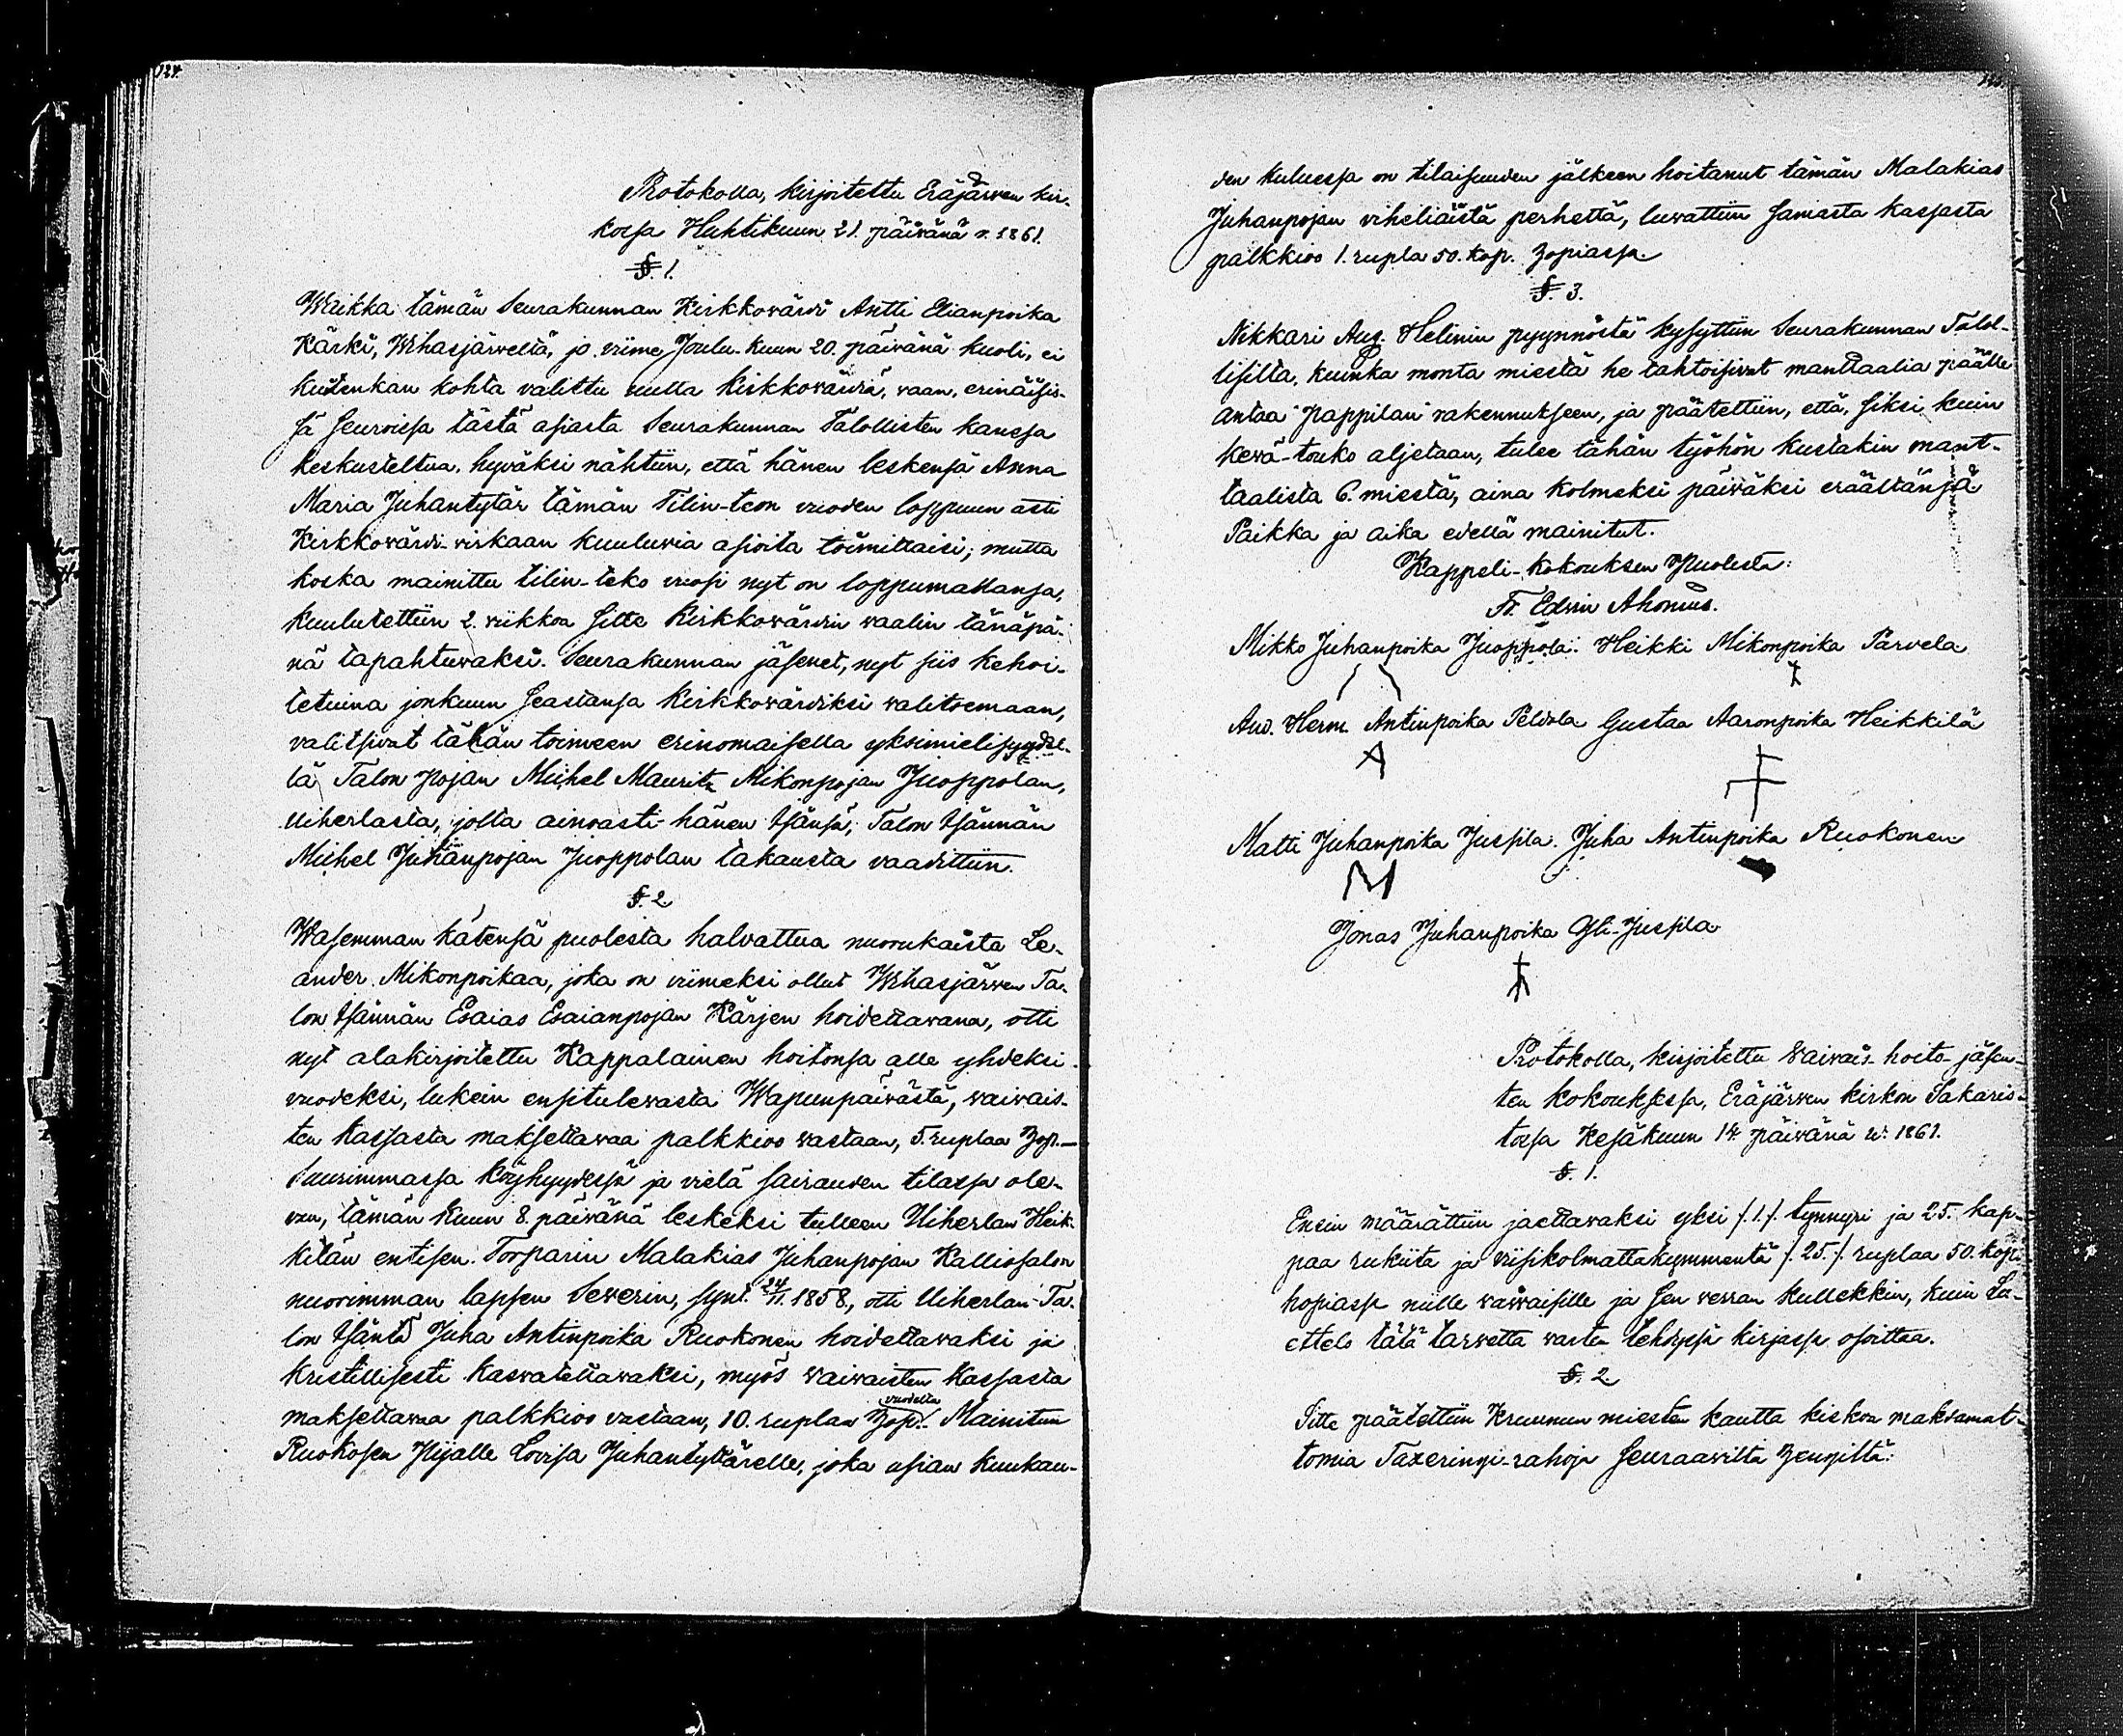 124.
Protokolla, kirjoitettu Eräjärven kir-
kossa Huhtikuun 21. päivänä v. 1861.
§. 1.
Waikka tämän Seurakunnan Kirkkovärdi Antti Elianpoika
Kärki, Wihasjärveltä, jo viime Joulu-kuun 20. päivänä kuoli, ei
kuitenkan kohta valittu uutta Kirkkovärdiä, vaan, erinäisis-
sä seuroissa tästä asiasta Seurakunnan Talollisten kanssa
keskusteltua, hyväksi nähtiin, että hänen leskensä Anna
Maria Juhantytär tämän Tilin-teon vuoden loppuun asti
Kirkkovärdi-virkaan kuuluvia asioita toimittaisi; mutta
koska mainittu tilin-teko vuosi nyt on loppumallansa,
kuulutettiin 2. viikkoa sitte Kirkkovärdin vaalin tänäpä-
nä tapahtuvaksi. Seurakunnan jäsenet, nyt siis kehoi-
tetuina jonkuun seastansa Kirkkovärdiksi valitsemaan,
valitsivat tähän toimeen erinomaisella yksimielisyydel-
lä Talon pojan Michel Maurits Mikonpojan Juoppolan,
Uiherlasta, jolta ainoasti hänen Isänsä, Talon Isännän
Michel Juhanpojan Juoppolan takausta vaadittiin.
§. 2
Wasemman kätensä puolesta halvattua nuorukaista Le-
ander Mikonpoikaa, joka on viimeksi ollut Wihasjärven Ta-
lon Isännän Esaias Esaianpojan Kärjen hoidettavana, otti
nyt alakirjoitettu Kappalainen hoitonsa alle yhdeksi
vuodeksi, lukein ensitulevasta Wapunpäivästä, vaivais-
ten kassasta maksettavaa palkkioo vastaan, 5. ruplaa Hop.—
Suurimmassa köyhyydessä ja vielä sairauden tilassa ole-
van, tämän kuun 8. päivänä leskeksi tulleen Uiherlan Heik-
kilän entisen Torparin Malakias Juhanpojan Kalliosalon
nuorimman lapsen Severin, synt. 24/11. 1858, otti Uiherlan Ta-
lon Isäntä Juha Antinpoika Ruokonen hoidettavaksi ja
kristillisesti kasvatettavaksi, myös vaivaisten kassasta
vuodelta
maksettavaa palkkioo vastaan, 10. ruplaa Hop. Mainitun
Ruokosen Piijalle Lovisa Juhantyttärelle, joka usian kuukau-
den kuluessa on tilaisuuden jälkeen hoitanut tämän Malakias
Juhanpojan viheliäistä perhettä, luvattiin samasta kassasta
palkkioo 1. rupla 50. kop. Hopiassa.
§. 3.
Nikkari Aug. Helinin pyynnöstä kysyttiin Seurakunnan Talol-
lisilta, kuinka monta miestä he tahtoisivat manttaalia päälle
antaa pappilan rakennukseen, ja päätettiin, että, siksi kuin
kevä-touko aljetaan, tulee tähän työhön kustakin mant-
taalista 6. miestä, aina kolmeksi päiväksi eräältänsä
Paikka ja aika edellä mainitut.
Kappeli-kokouksen Puolesta:
Fr. Edvin Ahonius.
Mikko Juhanpoika Juoppola. Heikki Mikonpoika Parvela
And. Herm. Antinpoika Peldola Gustaa Aaronpoika Heikkilä
Matti Juhanpoika Jussila. Juha Antinpoika Ruokonen
Jonas Juhanpoika Yli-Jussila
Protokolla, kirjoitettu Vaivais-hoito-jäsen-
ten kokouksessa, Eräjärven kirkon Sakaris-
tossa Kesäkuun 14. päivänä v. 1861.
§. 1.
Ensin määrättiin jaettavaksi yksi /. 1./. tynnyri ja 25. kap-
paa rukiita ja viisikolmattakymmentä /. 25./. ruplaa 50. kop.
hopiassa niille vaivaisille ja sen verran kullekkin, kuin Lu-
ettelo tätä tarvetta varten tehdyssä kirjassa osoittaa.
§. 2
Sitte päätettiin Kruunun miesten kautta kiskoa maksamat-
tomia Taxeringi-rahoja seuraavilta Hengiltä: